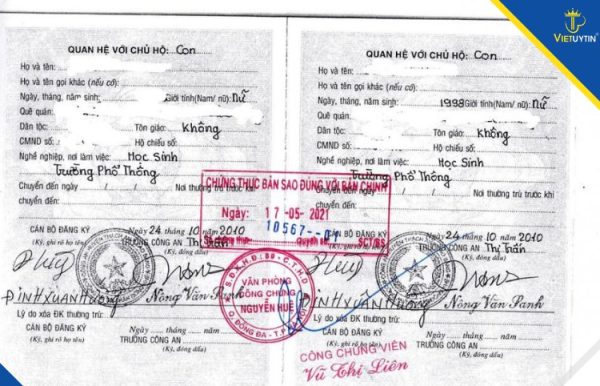 VIETUYTIN
QUAN HỆ VỚI CHỦ HỘ: Con
Họ và tên:
Họ và tên gọi khác (nếu có):
Ngày, tháng, năm sinh: Giới tính(Nam/ nữ): Nữ
Quê quán:
Dân tộc: Tôn giáo: Không
CMND số: Hộ chiếu số:
Nghề nghiệp, nơi làm việc: Học Sinh
Trường Phổ Thông
Chuyển đến ngày / / Nơi thường trú trước khi
chuyển đến:
Ngày 24 tháng 10 năm 2010
CÁN BỘ ĐĂNG KÝ TRƯỞNG CÔNG AN Thị Trấn
(Ký, ghi rõ họ tên) (Ký, đóng dấu)
Đinh Xuân Hương Nông Văn Sanh
Lý do xóa ĐK thường trú:
Ngày tháng năm
CÁN BỘ ĐĂNG KÝ TRƯỞNG CÔNG AN
(Ký, ghi rõ họ tên) (Ký, đóng dấu)
QUAN HỆ VỚI CHỦ HỘ: Con
Họ và tên:
Họ và tên gọi khác (nếu có):
Ngày, tháng, năm sinh: 1998 Giới tính(Nam/ nữ): Nữ
Quê quán:
Dân tộc: Tôn giáo: Không
CMND số: Hộ chiếu số:
Nghề nghiệp, nơi làm việc: Học Sinh
Trường Phổ Thông
Chuyển đến ngày / / Nơi thường trú trước khi
chuyển đến:
Ngày 24 tháng 10 năm 2010
CÁN BỘ ĐĂNG KÝ TRƯỞNG CÔNG AN Thị Trấn
(Ký, ghi rõ họ tên) (Ký, đóng dấu)
Đinh Xuân Hương Nông Văn Sanh
Lý do xóa ĐK thường trú:
Ngày tháng năm
CÁN BỘ ĐĂNG KÝ TRƯỞNG CÔNG AN
(Ký, ghi rõ họ tên) (Ký, đóng dấu)
CHỨNG THỰC BẢN SAO ĐÚNG VỚI BẢN CHÍNH
Ngày: 17-05-2021
10567
SCT/BS
VĂN PHÒNG
CÔNG CHỨNG
NGUYỄN HUỆ
Q. ĐỐNG ĐA
CÔNG CHỨNG VIÊN
Vũ Thị Liên